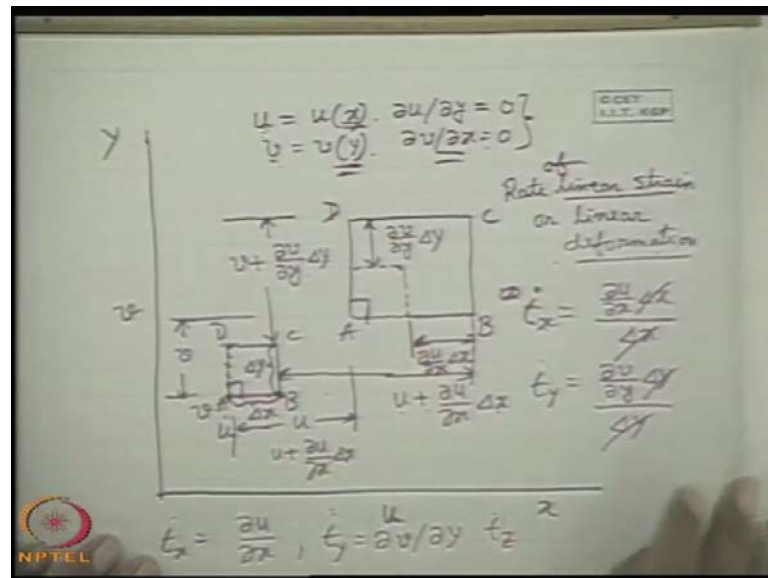 u = u(x). ∂u/∂y = 0}
v = v(y). ∂v/∂x = 0}
© CET
I.I.T. KGP
y
Rate of linear strain
or linear
deformation
D
C
v + ∂v/∂y Δy
∂v/∂y Δy
A
B
∂u/∂x Δx
ε̇x = ∂u/∂x Δx / Δx
ε̇y = ∂v/∂y Δy / Δy
v
v
D
C
Δy
B
v
u
Δx
u
u + ∂u/∂x Δx
u + ∂u/∂x Δx
x
ε̇x = ∂u/∂x , ε̇y = ∂v/∂y ε̇z
NPTEL